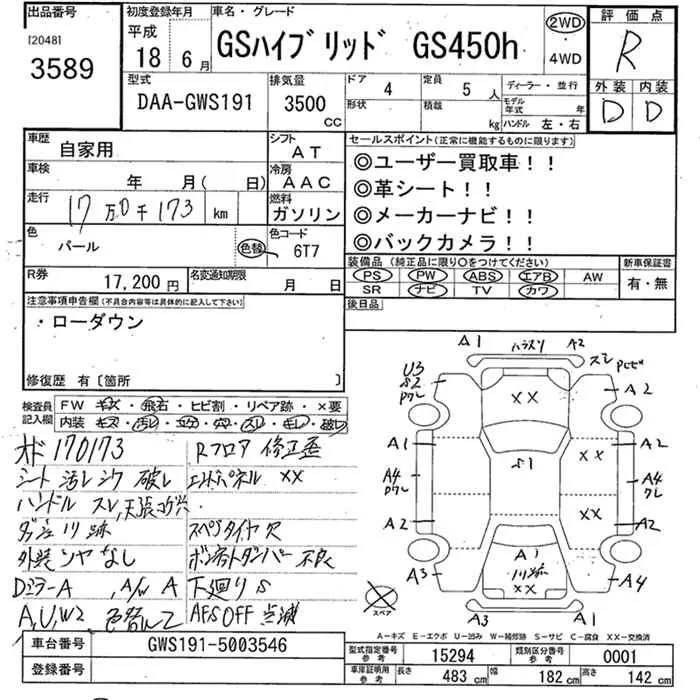 出品番号
120481
3589
初度登録年月
平成
18 6月
車名・グレード
GSハイブリッド GS450h
2WD
・
4WD
評価点
R
外装 内装
D D
型式
DAA-GWS191
排気量
3500
CC
ドア
4
定員
5 人
ディーラー・並行
形状
積載
kg
モデル年式 年
ハンドル 左・右
車歴
自家用
シフト
AT
車検
年 月( 日)
冷房
AAC
走行
17万0千173 km
燃料
ガソリン
色
パール
色替
色コード
6T7
R券
17,200 円
名変通知期限
月 日
セールスポイント(正常に機能するものに限ります)
◎ユーザー買取車!!
◎革シート!!
◎メーカーナビ!!
◎バックカメラ!!
装備品 (純正品に限り○をつけてください)
PS PW ABS エアB AW
SR ナビ TV カワ
新車保証書
有・無
後日品
注意事項申告欄(不具合内容等は具体的に記入して下さい)
・ローダウン
修復歴 有〔箇所 〕
検査員
記入欄
FW キズ・飛石・ヒビ割・リペア跡・×要
内装 キズ・汚レ・

オド170173
シート汚レシワ破レ
ハンドルスレ,天張
外装ツヤなし
DミラーA, A/W A
A,U,W2
Rフロア修正歪
エンドパネル××
スペアタイヤ欠
ボンネットダンパー不良
下廻りS
AFS OFF点滅
A1 A2
U3
S2
A2
××
A1
S1
A2
××
A4
A4
××
A2
A2
A1
××
A3
A4
A3
A1
スペア
A-キズ E-エクボ U-凹み W-補修跡 S-サビ C-腐食 XX-交換済
車台番号
GWS191-5003546
登録番号
型式指定番号
参考
15294
類別区分番号
参考
0001
車庫証明用
参考
長さ
483 cm
幅
182 cm
高さ
142 cm